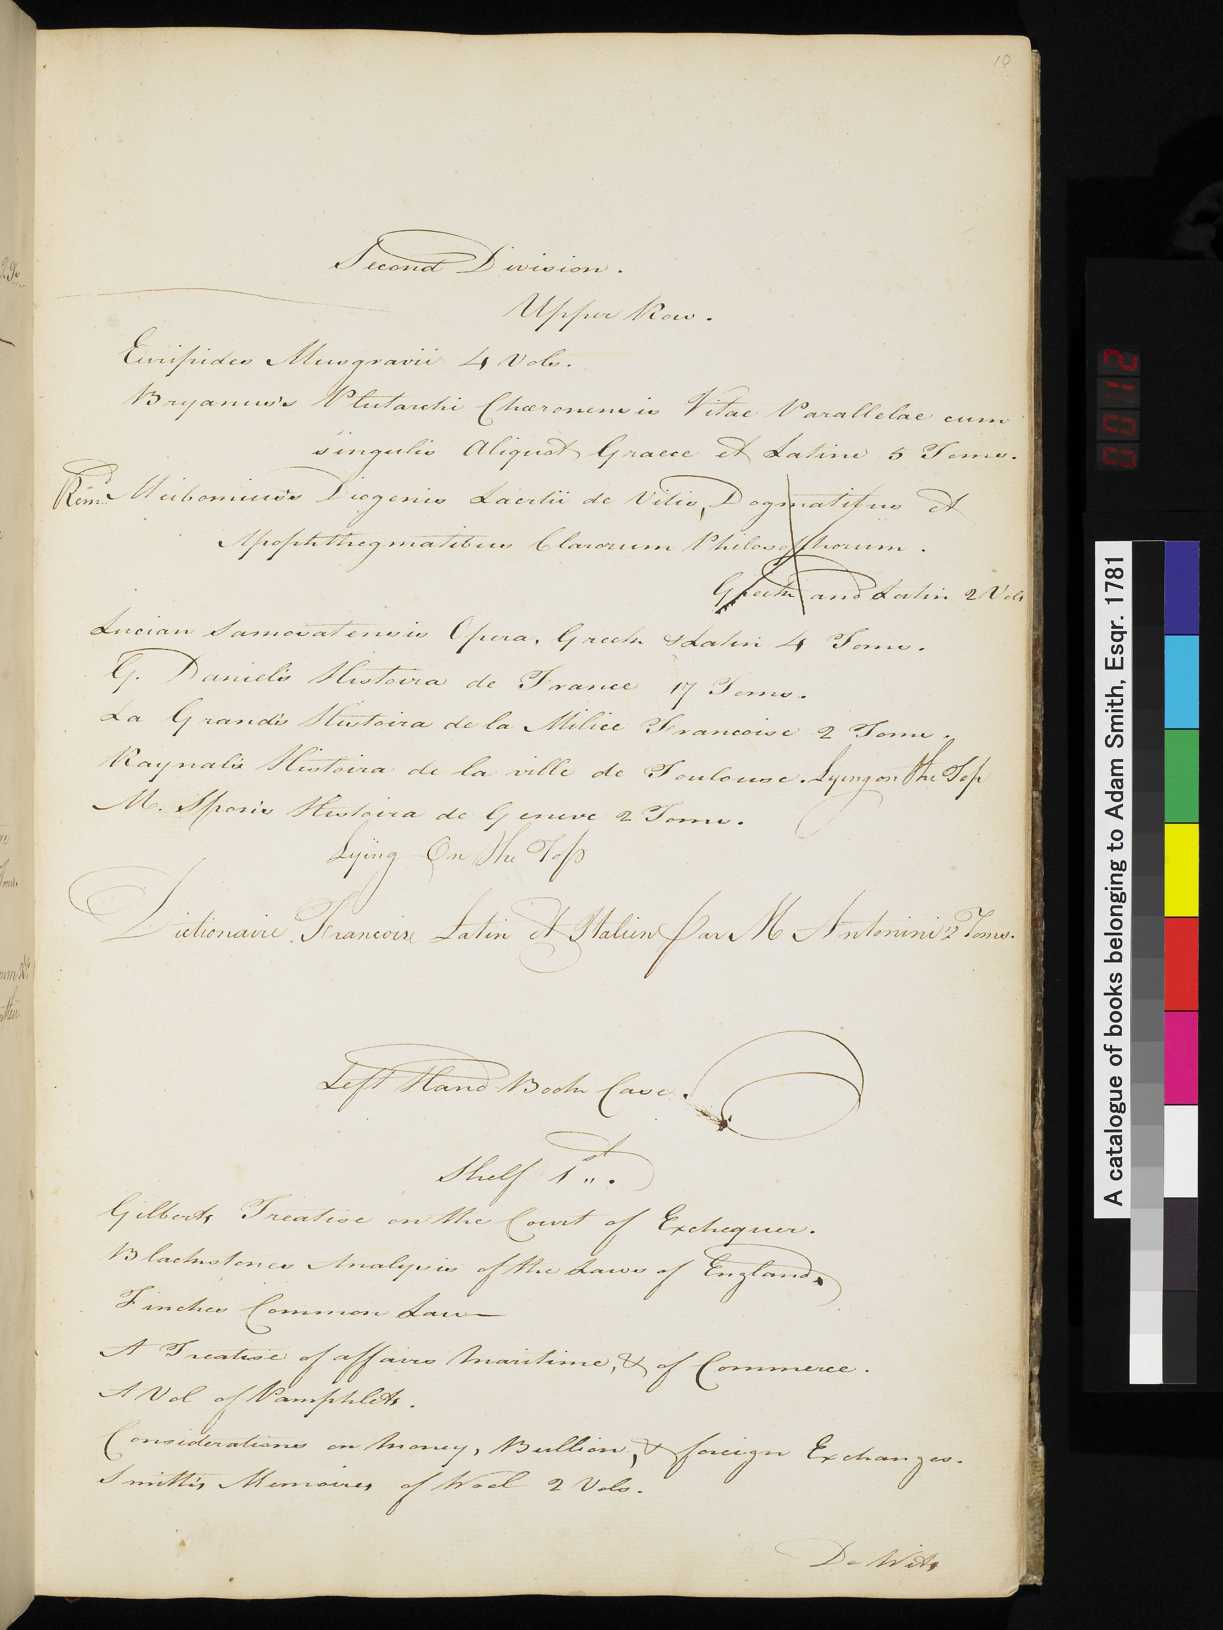 10
Second Division.
Upper Row.
Euripides Musgravii 4 Vols.
Bryanus's Plutarchi Chæronensis Vitae Parallelae cum
singulis Aliquot Graece et Latine 5 Toms.
Remd Meibomius's Diogenis Laertii de Vitis, Dogmatibus et
Apophthegmatibus Clarorum Philosophorum.
Greek and Latin 2 Vols
Lucian Samosatensis Opera, Greek & Latin 4 Toms.
G. Daniel's Histoira de France 17 Toms.
La Grand's Histoira de la Milice Francoise 2 Toms.
Raynalis Histoira de la ville de Toulouse. Lying on the Top
M. Spon's Histoira de Geneve 2 Toms.
Lying On the Top
Dictionaire Francoise Latin et Italien par M Antonini 2 Toms.
Left Hand Book Case.
Shelf 1st.
Gilberts Treatise on the Court of Exchequer.
Blackstones Analysis of the Laws of England.
Finches Common Law
A Treatise of affairs Maritime, & of Commerce.
A Vol of Pamphlets.
Considerations on Money, Bullion, & foreign Exchanges.
Smith's Memoires of Wool 2 Vols.
De Wits
0012
A catalogue of books belonging to Adam Smith, Esqr. 1781